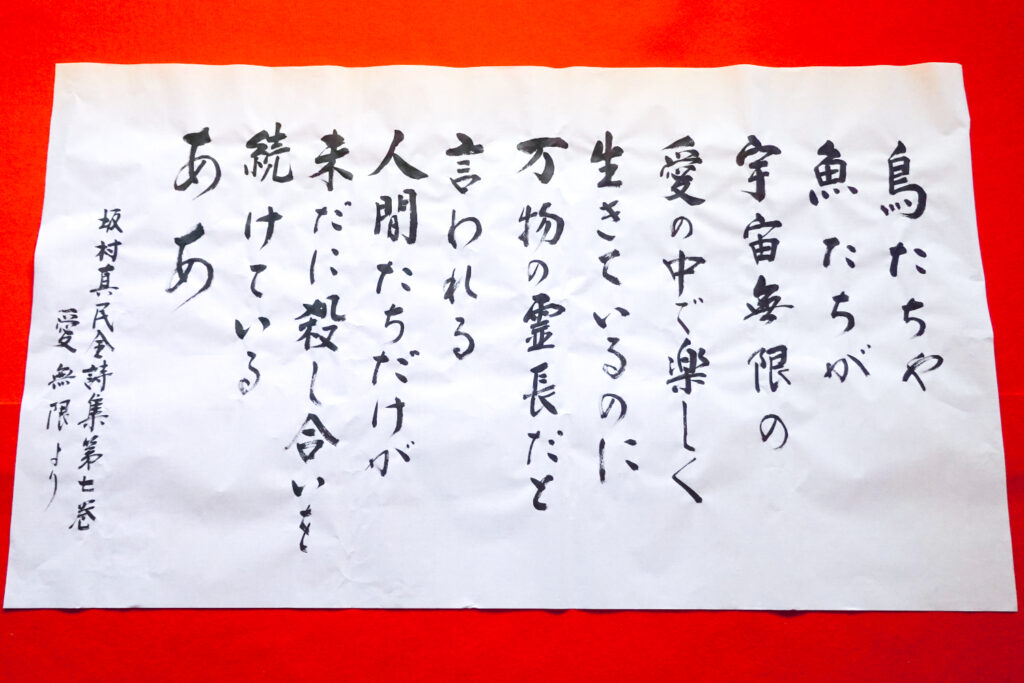 鳥たちや
魚たちが
宇宙無限の
愛の中で楽しく
生きているのに
万物の霊長だと
言われる
人間たちだけが
未だに殺し合いを
続けている
ああ
坂村真民全詩集第七巻
愛無限より